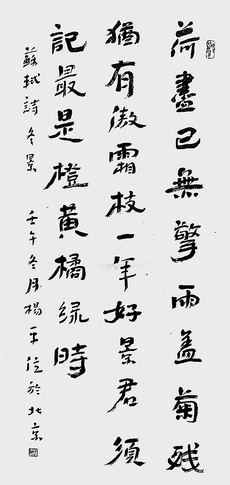 荷盡已無擎雨盖菊残
猶有傲霜枝一年好景君須
記最是橙黄橘绿時
蘇軾詩 冬景 壬午冬月楊於北京